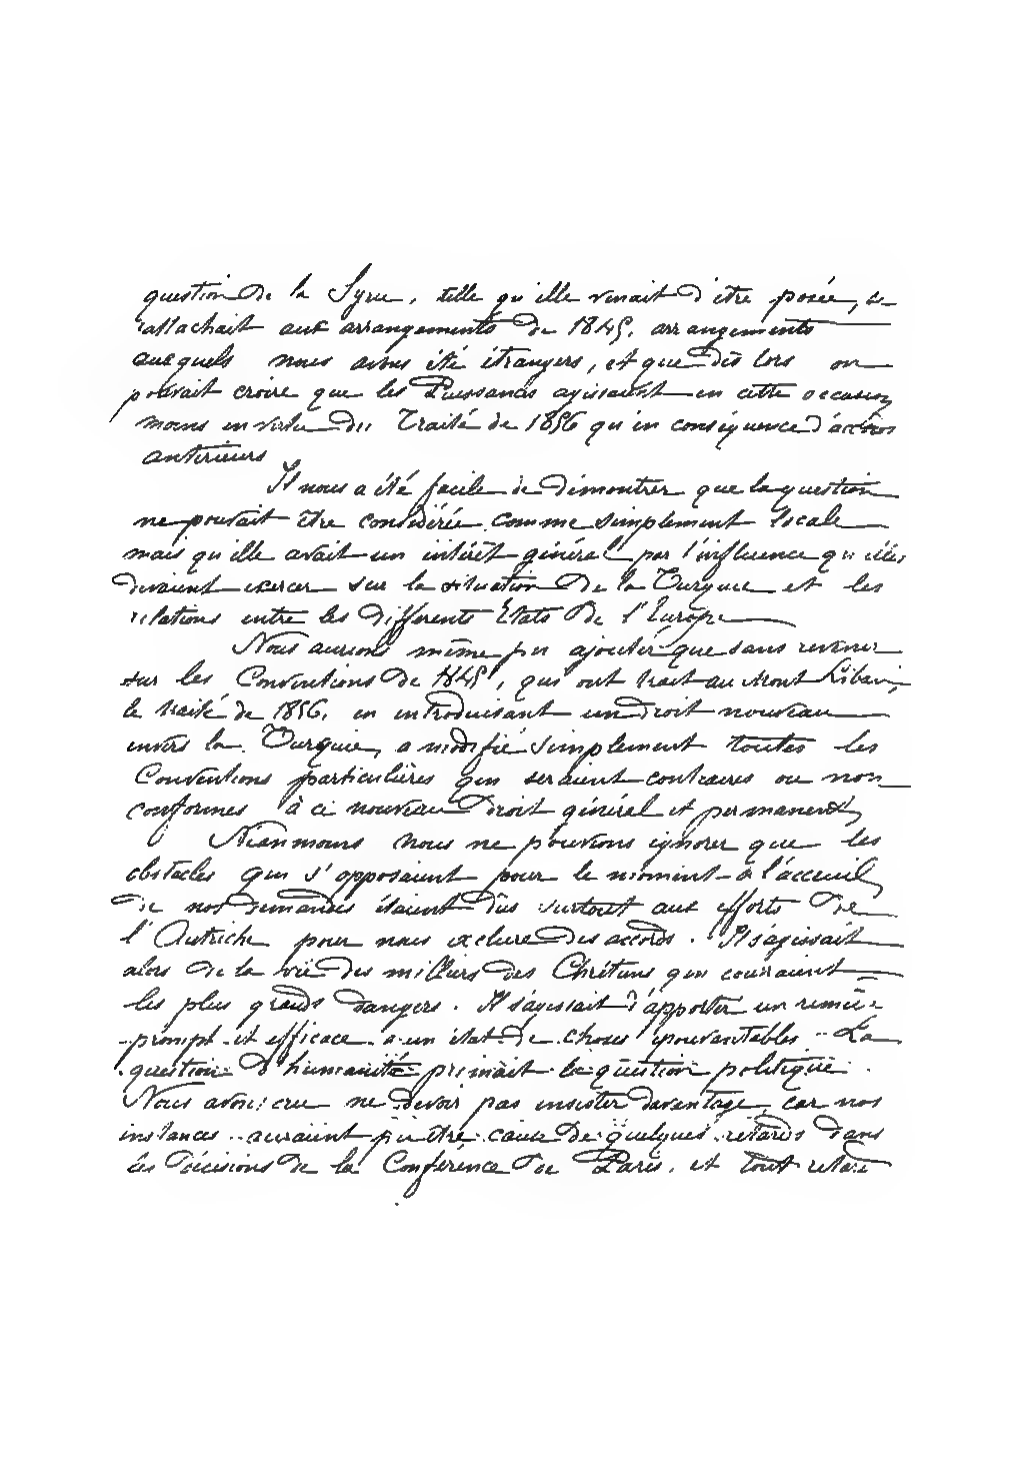 question de la Syrie, telle qu'elle venait d'être posée, se
rattachait aux arrangements de 1845, arrangements
auxquels nous avons été étrangers, et que dès lors on
pouvait croire que les Puissances agissaient en cette occasion
moins en vertu du Traité de 1856 qu'en conséquence d'accords
antérieurs
Il nous a été facile de démontrer que la question
ne pouvait être considérée comme simplement locale
mais qu'elle avait un intérêt général par l'influence qu'elle
devaient exercer sur la situation de la Turquie et les
relations entre les différents Etats de l'Europe
Nous aurions même pu ajouter que sans revenir
sur les Conventions de 1845, qui ont trait au Mont Liban,
le traité de 1856, en introduisant un droit nouveau
envers la Turquie, a modifié simplement toutes les
Conventions particulières qui seraient contraires ou non
conformes à ce nouveau droit général et permanent,
Néanmoins nous ne pouvions ignorer que les
obstacles qui s'opposaient pour le moment à l'acceuil
de nos demandes étaient dûs surtout aux efforts de
l'Autriche pour nous exclure des accords. Il s'agissait
alors de la vie des milliers des Chrétiens qui couraient
les plus grands dangers. Il s'agissait d'apporter un remède
prompt et efficace a un état de choses épouvantables. La
question d'humanité primait la question politique.
Nous avons cru ne devoir pas insister davantage, car nos
instances auraient pu être cause de quelques retards dans
les décisions de la Conférence de Paris, et tout retard